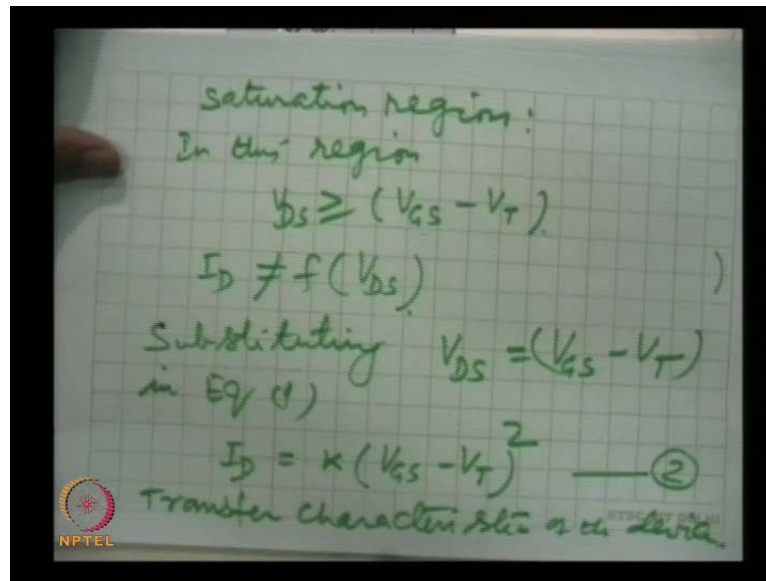 saturation region:
In this region
V_DS ≥ (V_GS - V_T)
I_D ≠ f(V_DS) )
Substituting V_DS = (V_GS - V_T)
in Eq (1)
I_D = K (V_GS - V_T)^2 —— ②
Transfer characteristic of the device.
NPTEL